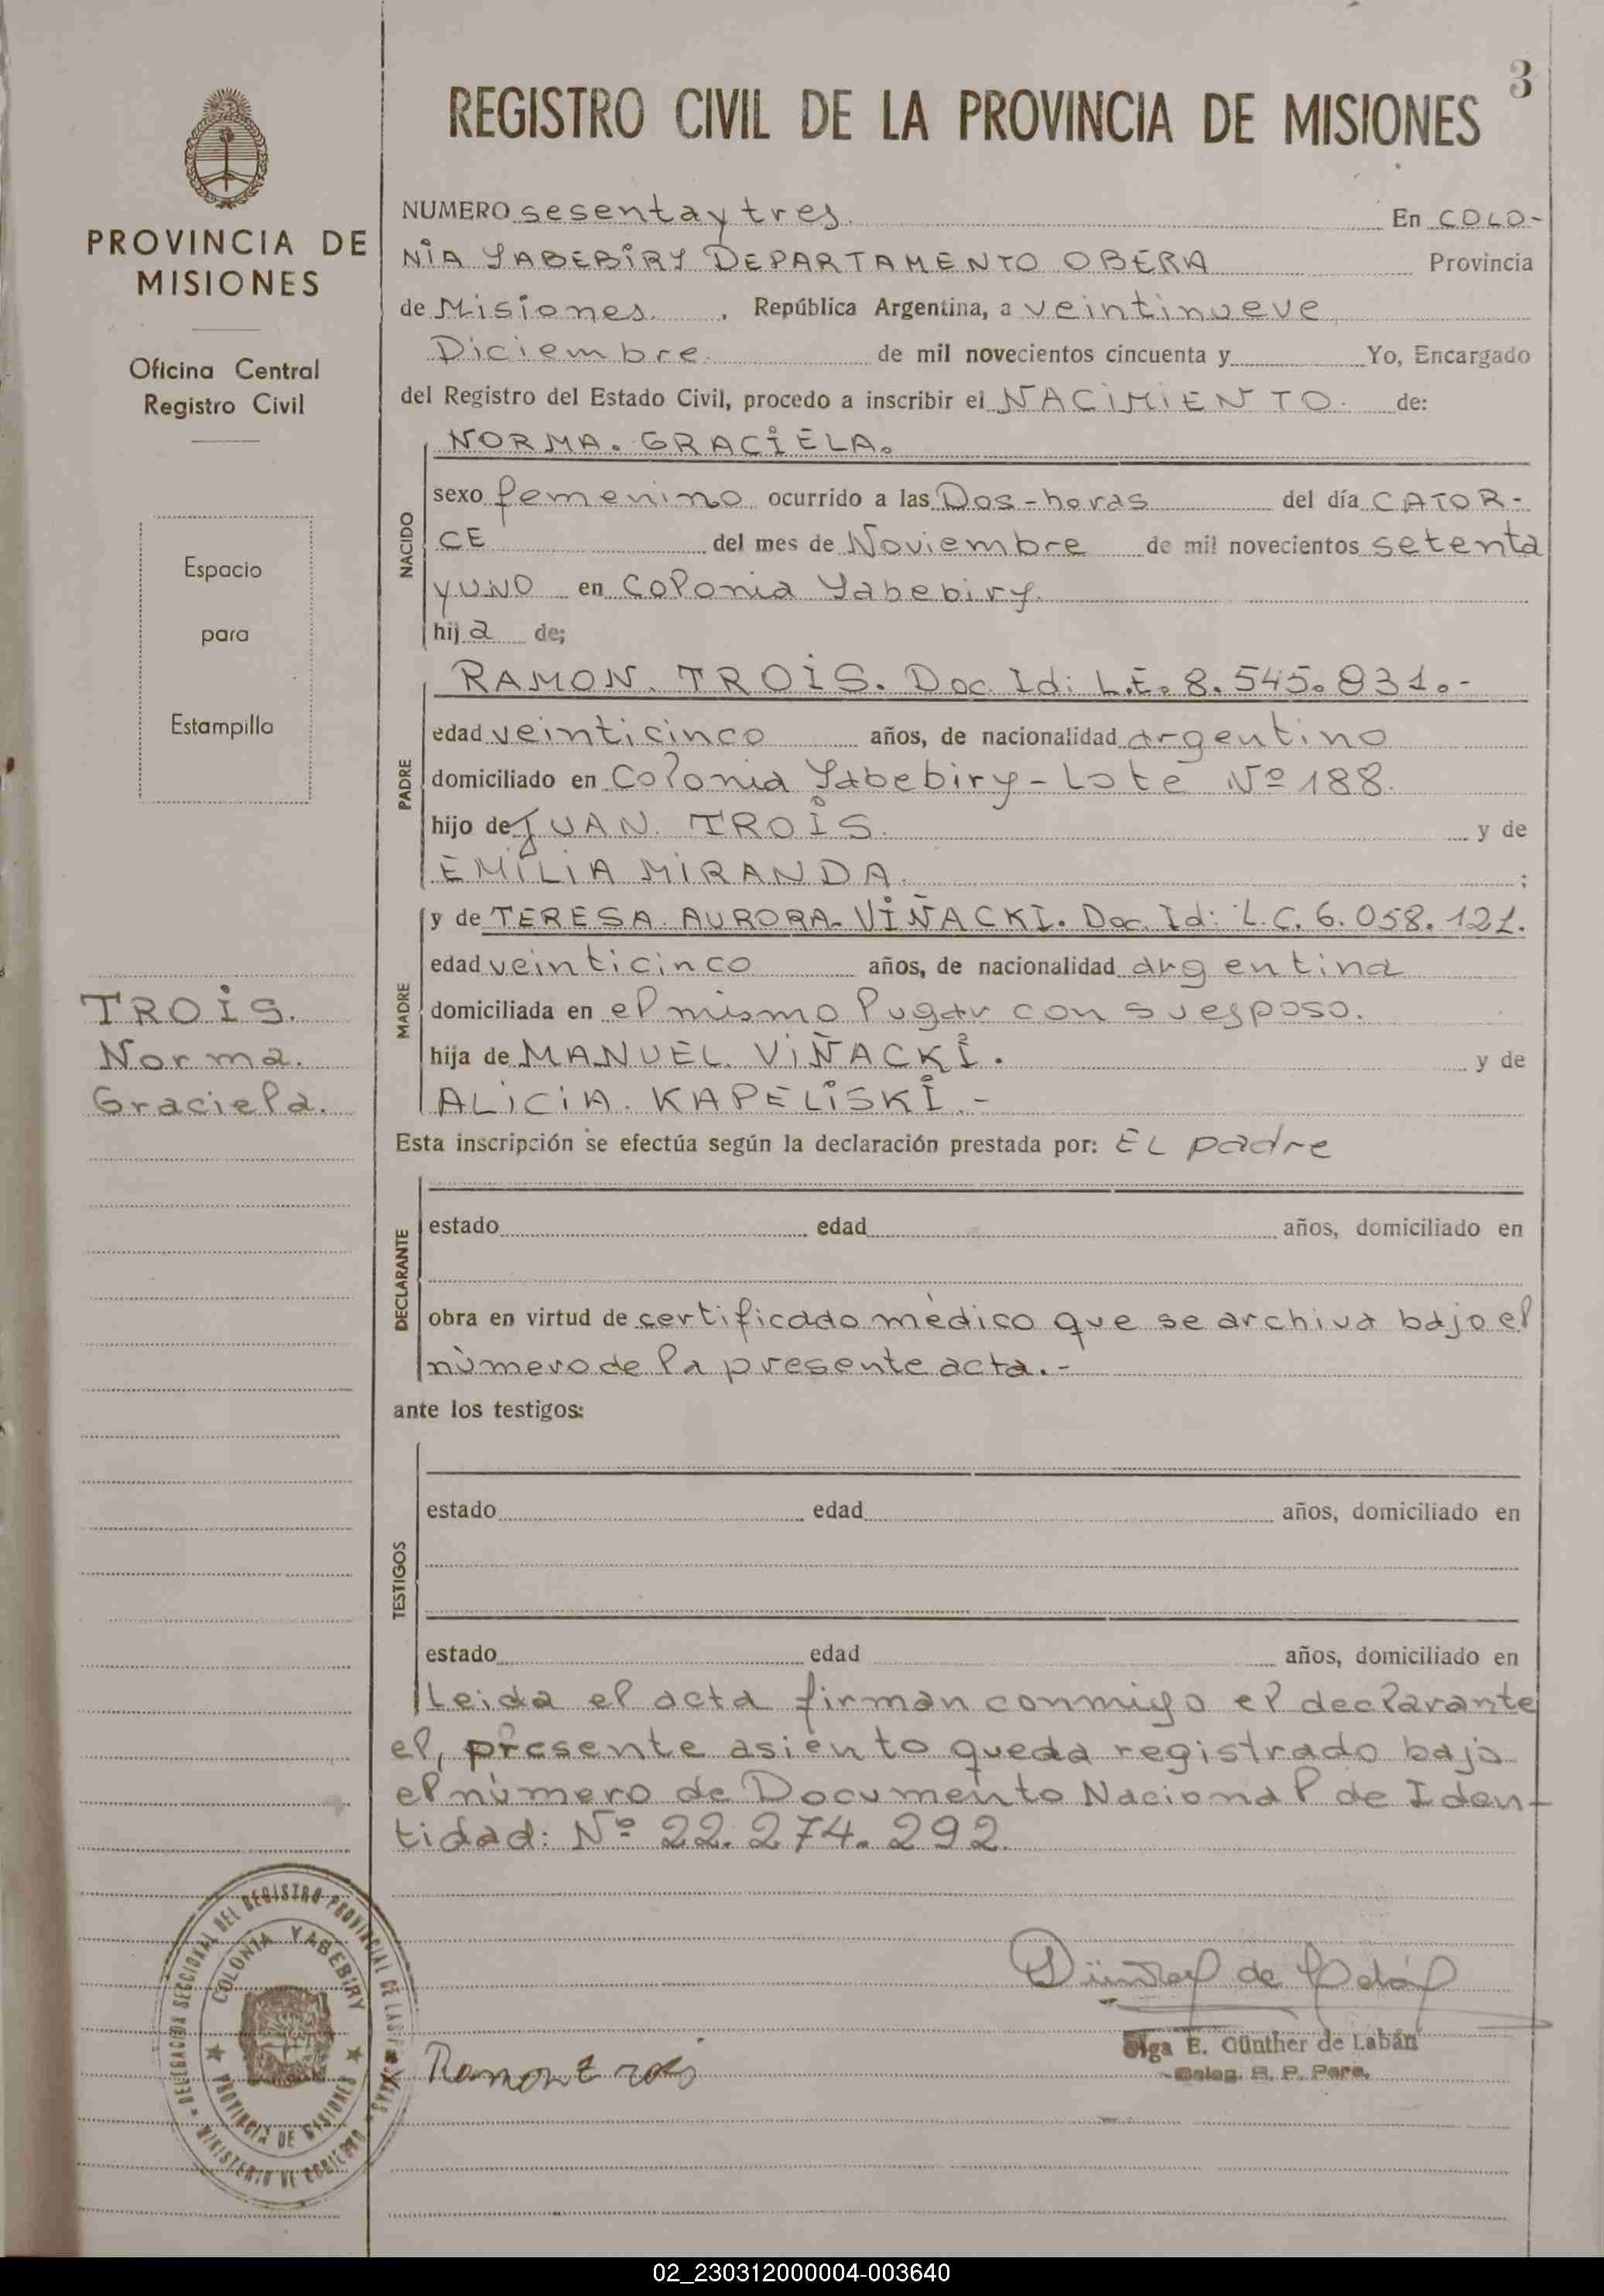 3
REGISTRO CIVIL DE LA PROVINCIA DE MISIONES
PROVINCIA DE
MISIONES
Oficina Central
Registro Civil
Espacio
para
Estampilla
TROIS.
Norma.
Graciela.
NUMERO sesenta y tres. En COLO-
NIA YABEBIRY DEPARTAMENTO OBERA Provincia
de Misiones. , República Argentina, a veintinueve
Diciembre. de mil novecientos cincuenta y Yo, Encargado
del Registro del Estado Civil, procedo a inscribir el NACIMIENTO. de:
NACIDO
NORMA. GRACIELA.
sexo femenino ocurrido a las Dos-horas del día CATOR-
CE del mes de Noviembre de mil novecientos setenta
y UNO en Colonia Yabebiry.
hija de;
PADRE
RAMON. TROIS. Doc. Id: L.E. 8.545.831.-
edad veinticinco años, de nacionalidad argentino
domiciliado en Colonia Yabebiry-Lote Nº 188.
hijo de JUAN. TROIS. y de
EMILIA MIRANDA. ;
MADRE
y de TERESA. AURORA. VIÑACKI. Doc. Id: L.C. 6.058.121.
edad veinticinco años, de nacionalidad argentina
domiciliada en el mismo lugar con su esposo.
hija de MANUEL. VIÑACKI. y de
ALICIA. KAPELISKI.-
Esta inscripción se efectúa según la declaración prestada por: EL padre
DECLARANTE
estado edad años, domiciliado en
obra en virtud de certificado mèdico que se archiva bajo el
nùmero de la presente acta.-
ante los testigos:
TESTIGOS
estado edad años, domiciliado en
estado edad años, domiciliado en
Leida el acta firman conmigo el declarante
el, presente asiento queda registrado bajo
el nùmero de Documento Nacional de Iden-
tidad: Nº 22.274.292.
DELEGACION SECCIONAL DEL REGISTRO PROVINCIAL DE LAS PERSONAS
MINISTERIO DE GOBIERNO
COLONIA YABEBIRY
PROVINCIA DE MISIONES
Ramon Trois
Günther de Labán
Olga E. Günther de Labán
Deleg. R. P. Pers.
02_230312000004-003640